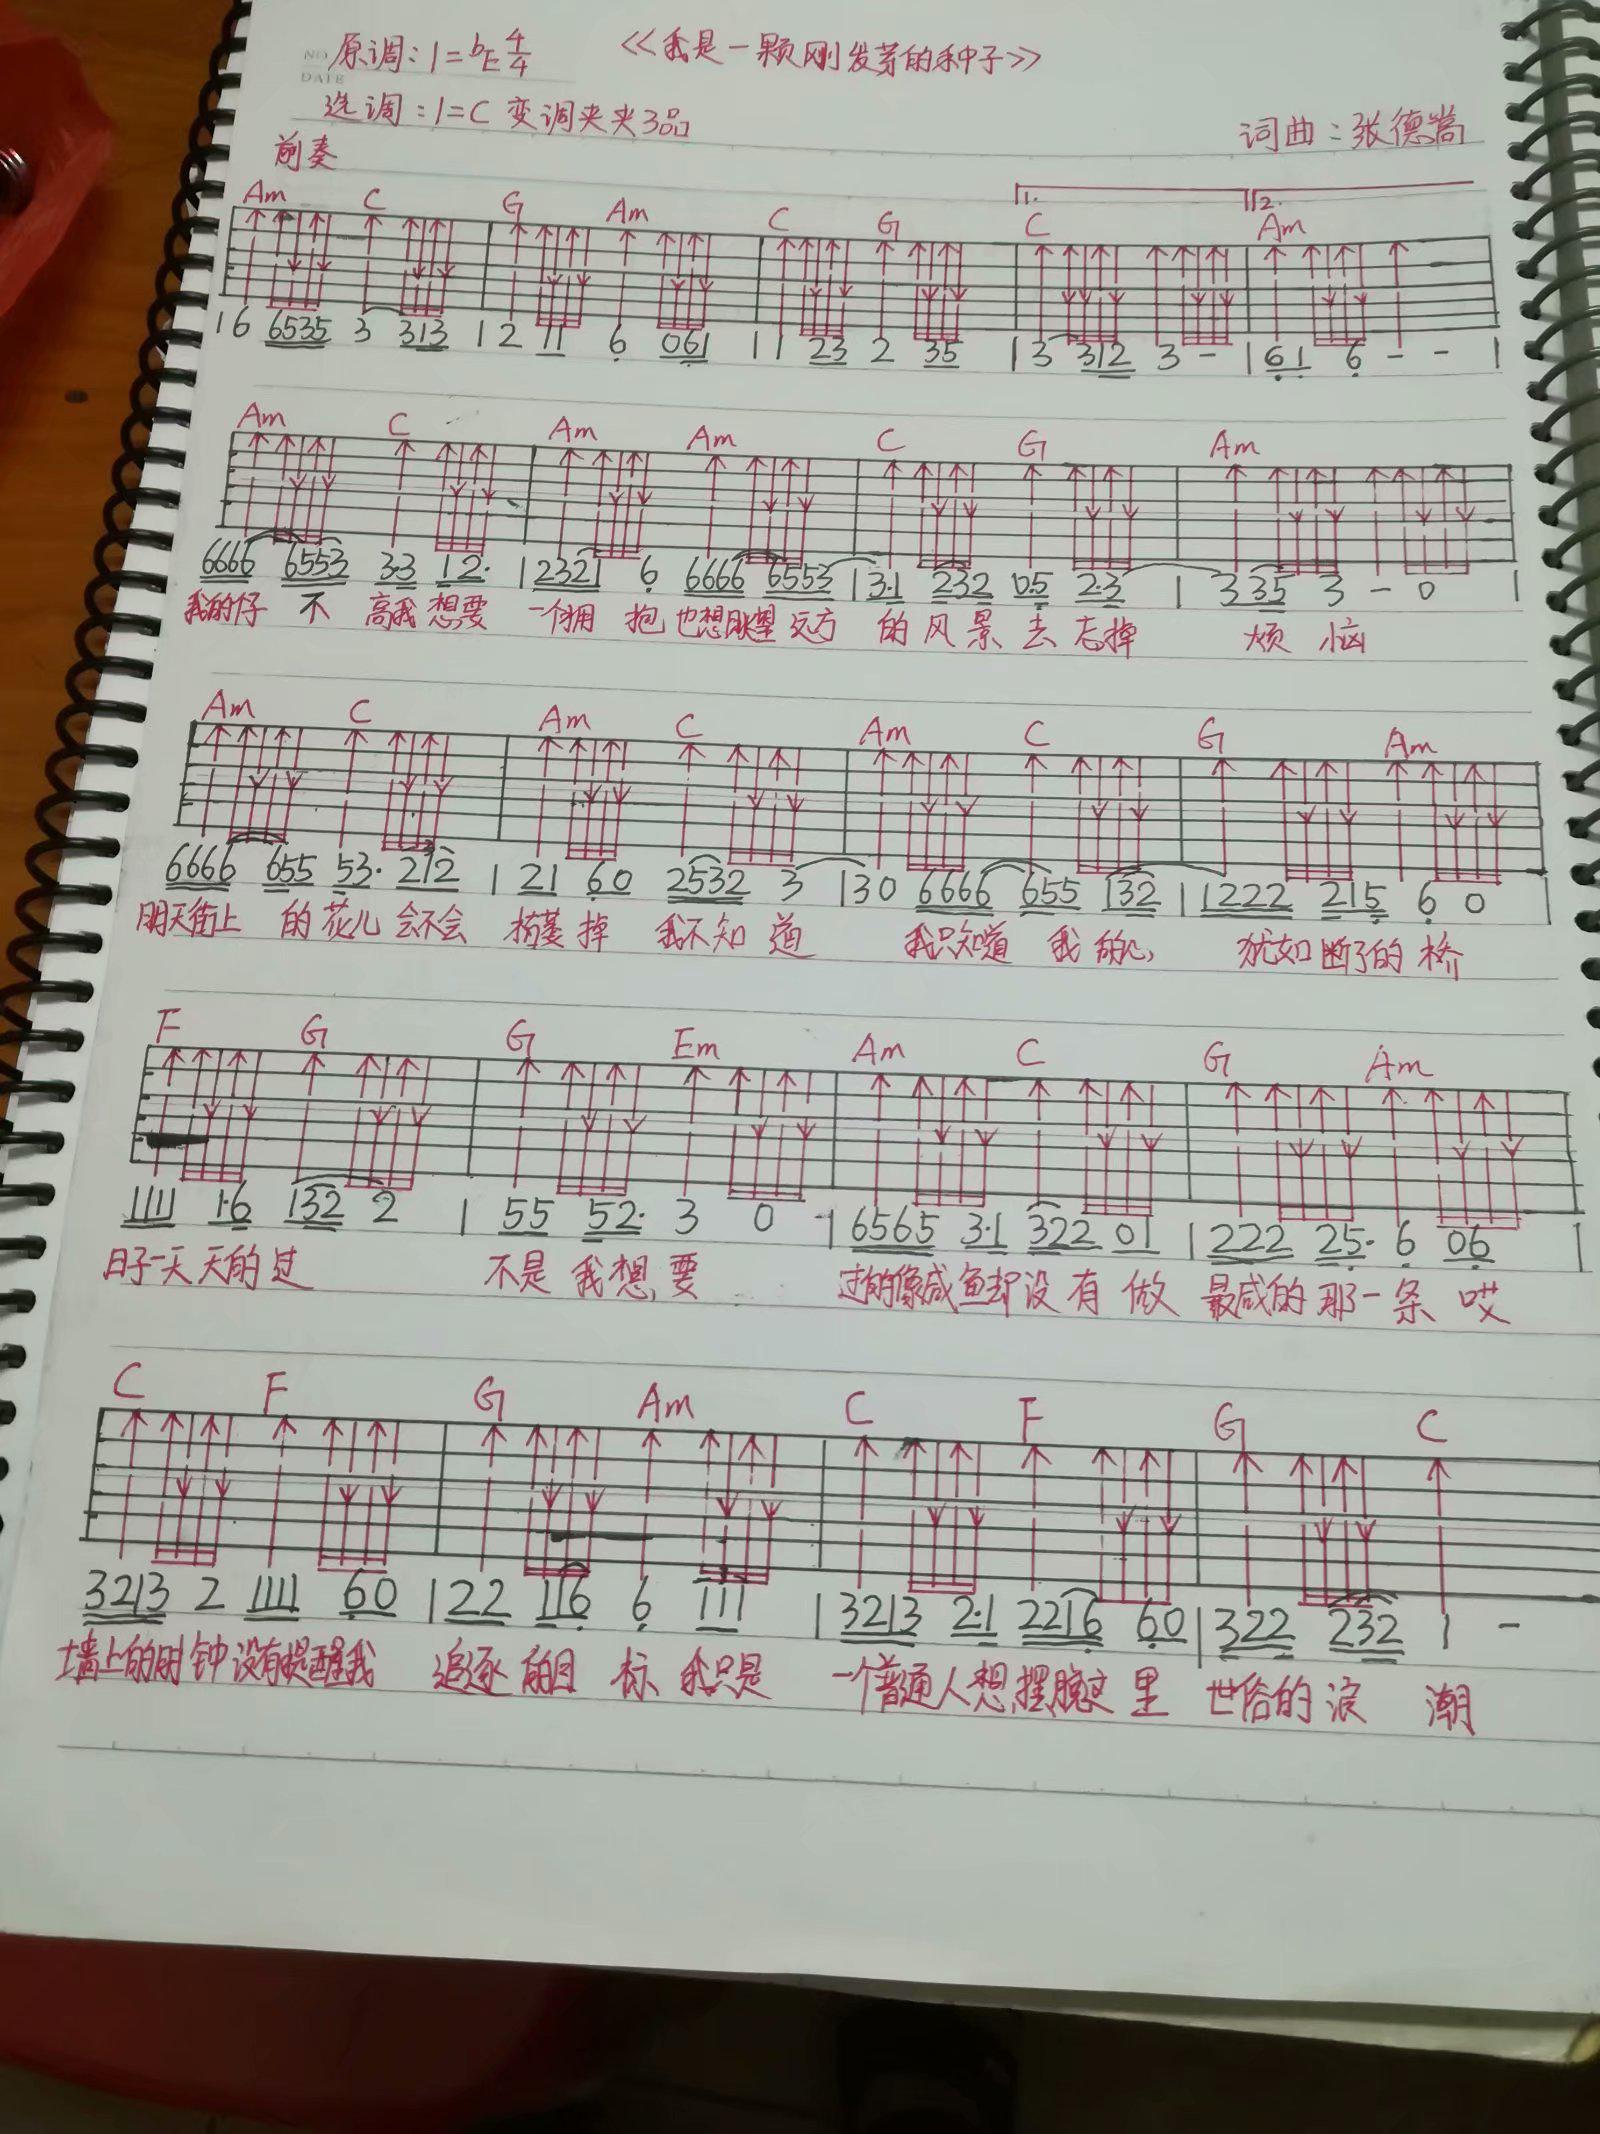 NO.
DATE
原调:1=bE 4/4 《我是一颗刚发芽的种子》
选调:1=C 变调夹夹3品
词曲:张德嵩
前奏
1. 2.
Am C G Am C G C Am
16 6535 3 313 | 2 11 6 061 | 1 23 2 35 | 3 312 3 - | 61 6 - - |
Am C Am Am C G Am
6666 6553 3·3 12· | 2321 6 6666 6553 | 3·1 232 05 2·3 | 335 3 - 0 |
我的个 不 高我 想要 一个拥 抱 也想眺望 远方 的 风 景 去 忘掉 烦 恼
Am C Am C Am C G Am
6666 655 53· 212 | 21 60 2532 3 | 30 6666 655 132 | 1222 215 6 0 |
明天街上 的 花儿 会不会 枯萎 掉 我不 知 道 我只知道 我 的心 犹如 断了的 桥
F G G Em Am C G Am
1111 1·6 132 2 | 55 52· 3 0 | 6565 3·1 322 01 | 222 25· 6 06 |
日子一天 天的 过 不是 我 想 要 过的像咸 鱼却 没 有 做 最咸的 那一 条 哎
C F G Am C F G C
3213 2 1111 60 | 22 116 6 111 | 3213 2·1 2216 60 | 322 232 1 -
墙上的时 钟 没有提醒我 追逐 的目 标 我只是 一个普通人 想 摆脱这 里 世俗的 浪 潮